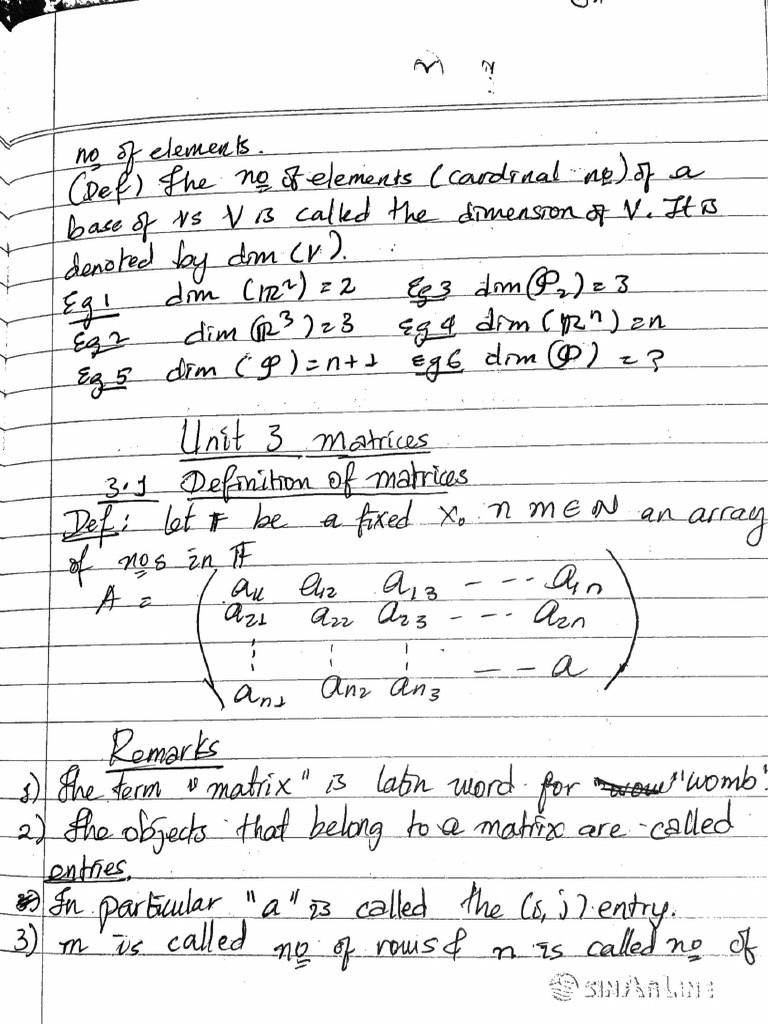 no of elements.
(Def) The no of elements (cardinal no) of a
base of vs V is called the dimension of V. It is
denoted by dim (V).
Eg 1 dim (ℝ²) = 2 Eg 3 dim (P₂) = 3
Eg 2 dim (ℝ³) = 3 Eg 4 dim (ℝⁿ) = n
Eg 5 dim (P) = n+1 Eg 6 dim (P) = ?
Unit 3 matrices
3.1 Definition of matrices
Def: let F be a fixed n m ∈ N an array
of nos in F
A = ( a₁₁ a₁₂ a₁₃ - - - a₁ₙ
a₂₁ a₂₂ a₂₃ - - - a₂ₙ
⋮ ⋮ ⋮ - - a )
aₙ₁ aₙ₂ aₙ₃
Remarks
1) The term "matrix" is latin word for "womb".
2) The objects that belong to a matrix are called
entries.
In particular "a" is called the (i, j) entry.
3) m is called no of rows & n is called no of